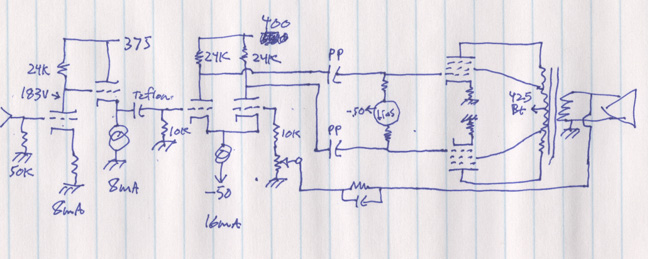 375
400
24K
24K
24K
183V
Teflon
PP
PP
10K
10K
-50
bias
425
B+
50K
8mA
8mA
-50
16mA